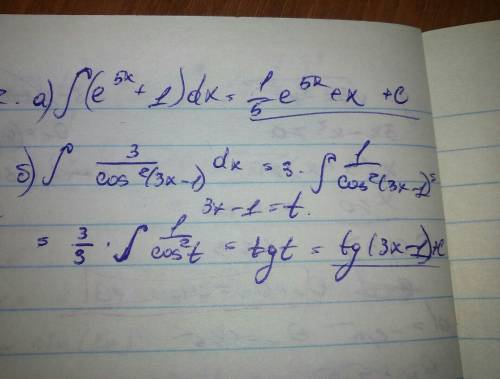 2. а) ∫(e^5x + 1)dx = 1/5 e^5x + x + c
б) ∫ 3/cos²(3x-1) dx = 3 · ∫ 1/cos²(3x-1) =
3x-1=t.
= 3/3 · ∫ 1/cos²t = tgt = tg(3x-1)+c